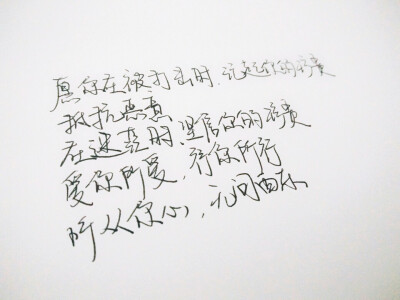 愿你在被打击时，记起你的珍贵
抵抗恶意
在迷茫时，坚信你的珍贵
爱你所爱，行你所行
听从你心，无问西东